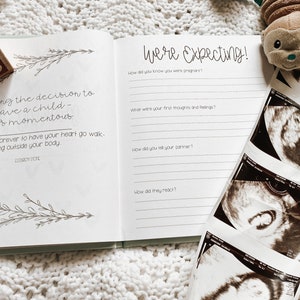 the decision to
have a child -
momentous.
forever to have your heart go walk-
ing outside your body.
We're Expecting!
How did you know you were pregnant?
What were your first thoughts and feelings?
How did you tell your partner?
How did they react?